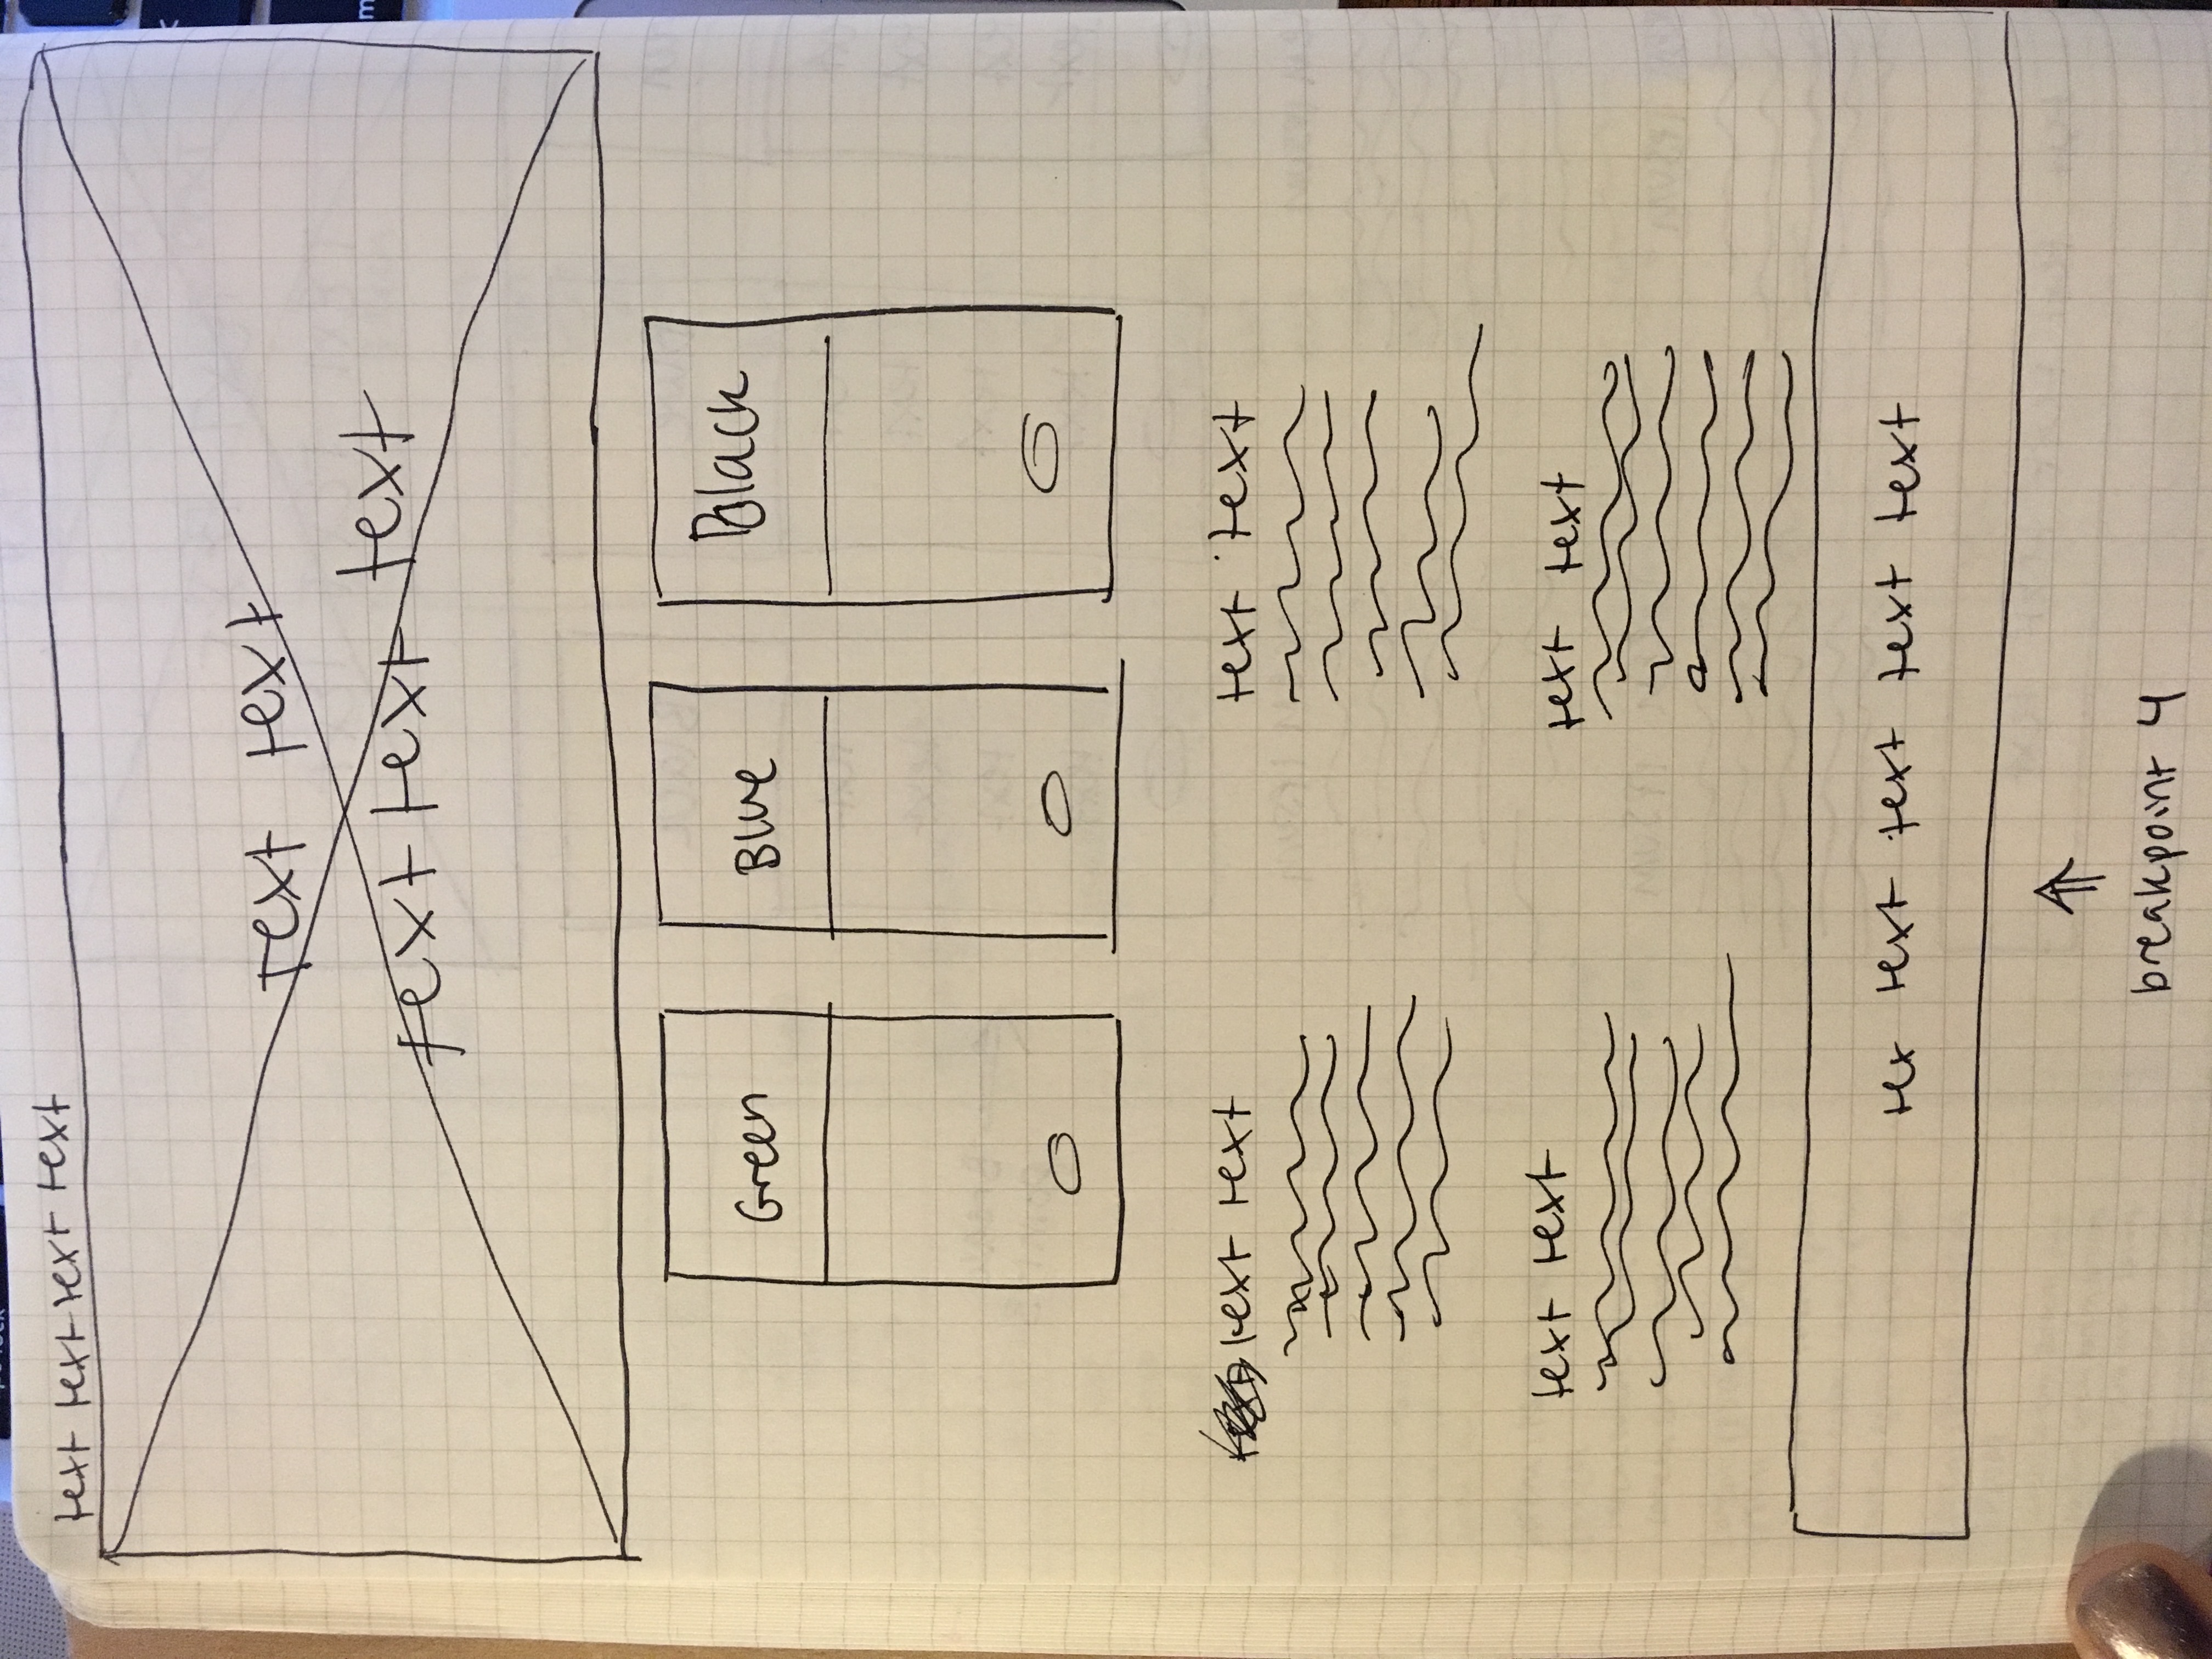 text text text text
text text
text text text
Green Blue Black
text text text text
text text text text
tex text text text text
breakpoint 4